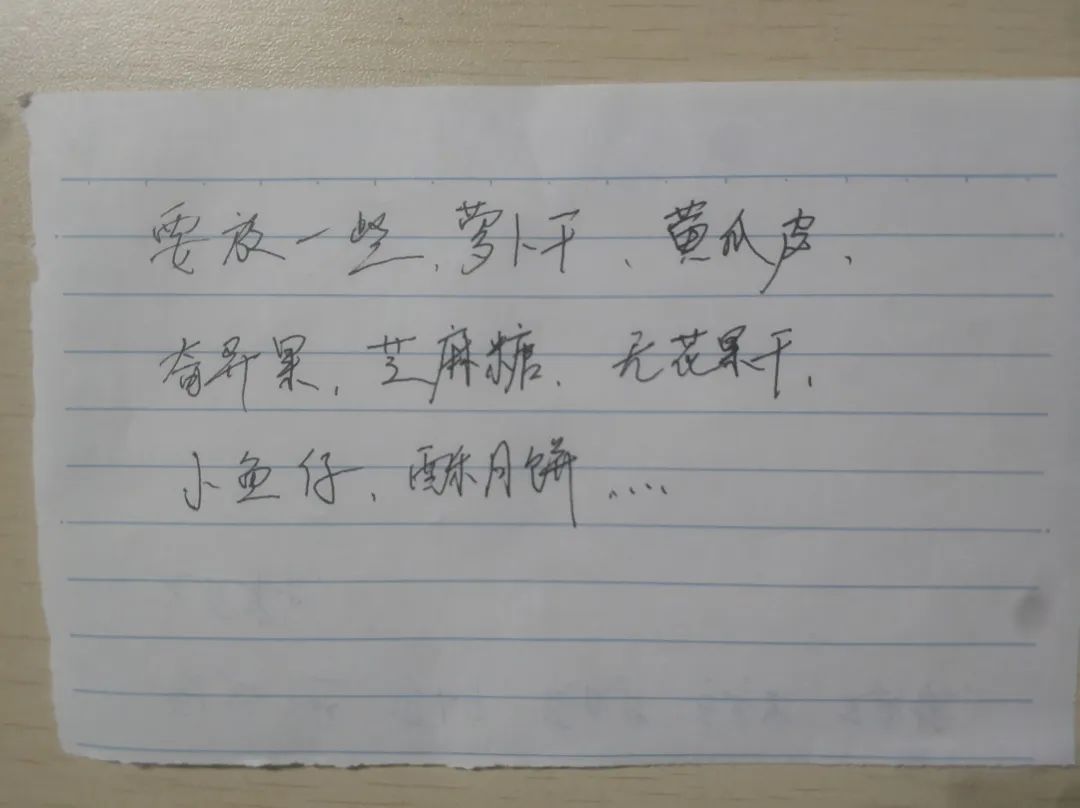 要放一些、萝卜干、黄瓜皮、
奋异果、芝麻糖、无花果干、
小鱼仔、酥月饼....